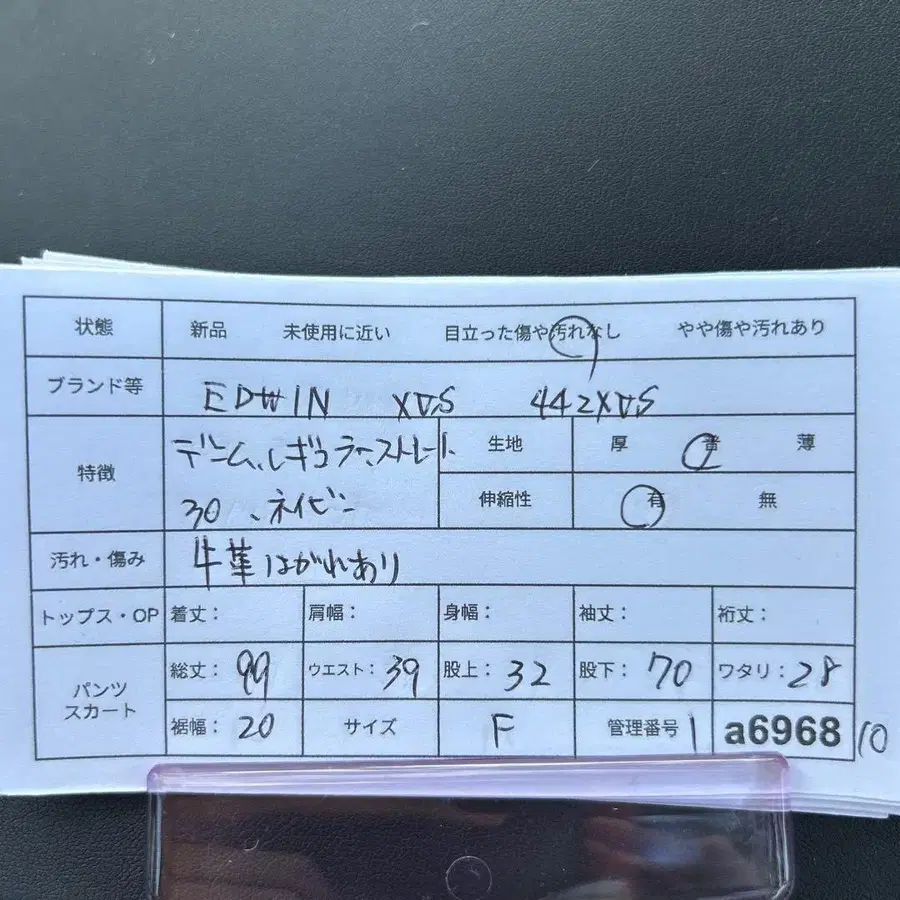 状態 新品 未使用に近い 目立った傷や汚れなし やや傷や汚れあり
ブランド等 EDWIN XVS 442XVS
特徴 デニム、レギュラーストレート 30、ネイビー
生地 厚 普 薄
伸縮性 有 無
汚れ・傷み 牛革はがれあり
トップス・OP 着丈: 肩幅: 身幅: 袖丈: 裄丈:
パンツ スカート 総丈: 99 ウエスト: 39 股上: 32 股下: 70 ワタリ: 28
裾幅: 20 サイズ F 管理番号 1 a6968 10